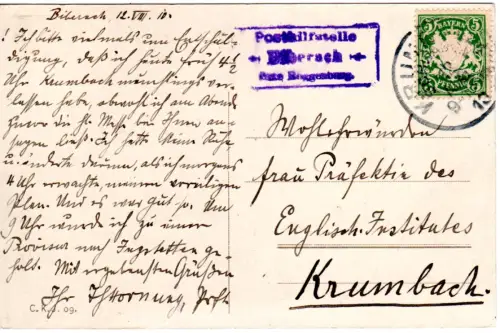 Biberach, 12. VIII. 10.
! Ich bitte vielmals um Entschul-
digung, daß ich heute früh 4 1/2
Uhr Krumbach
lassen habe, obwohl ich am Abend
zuvor die hl. Messe bei Ihnen an-
sagen ließ. Ich hatte keine Ruhe
u. änderte darum, als ich morgens
4 Uhr erwachte, meinen
Plan. Und es war gut so. Um
9 Uhr wurde ich zu einer
nach ge-
holt. Mit ergebensten Grüßen
Ihr
C. K. 09.
Posthilfstelle
Biberach
Taxe Roggenburg.
BAYERN
5 5
PFENNIG
KRUM
Wohlehrwürden
Frau Präfektin des
Englisch. Institutes
Krumbach.